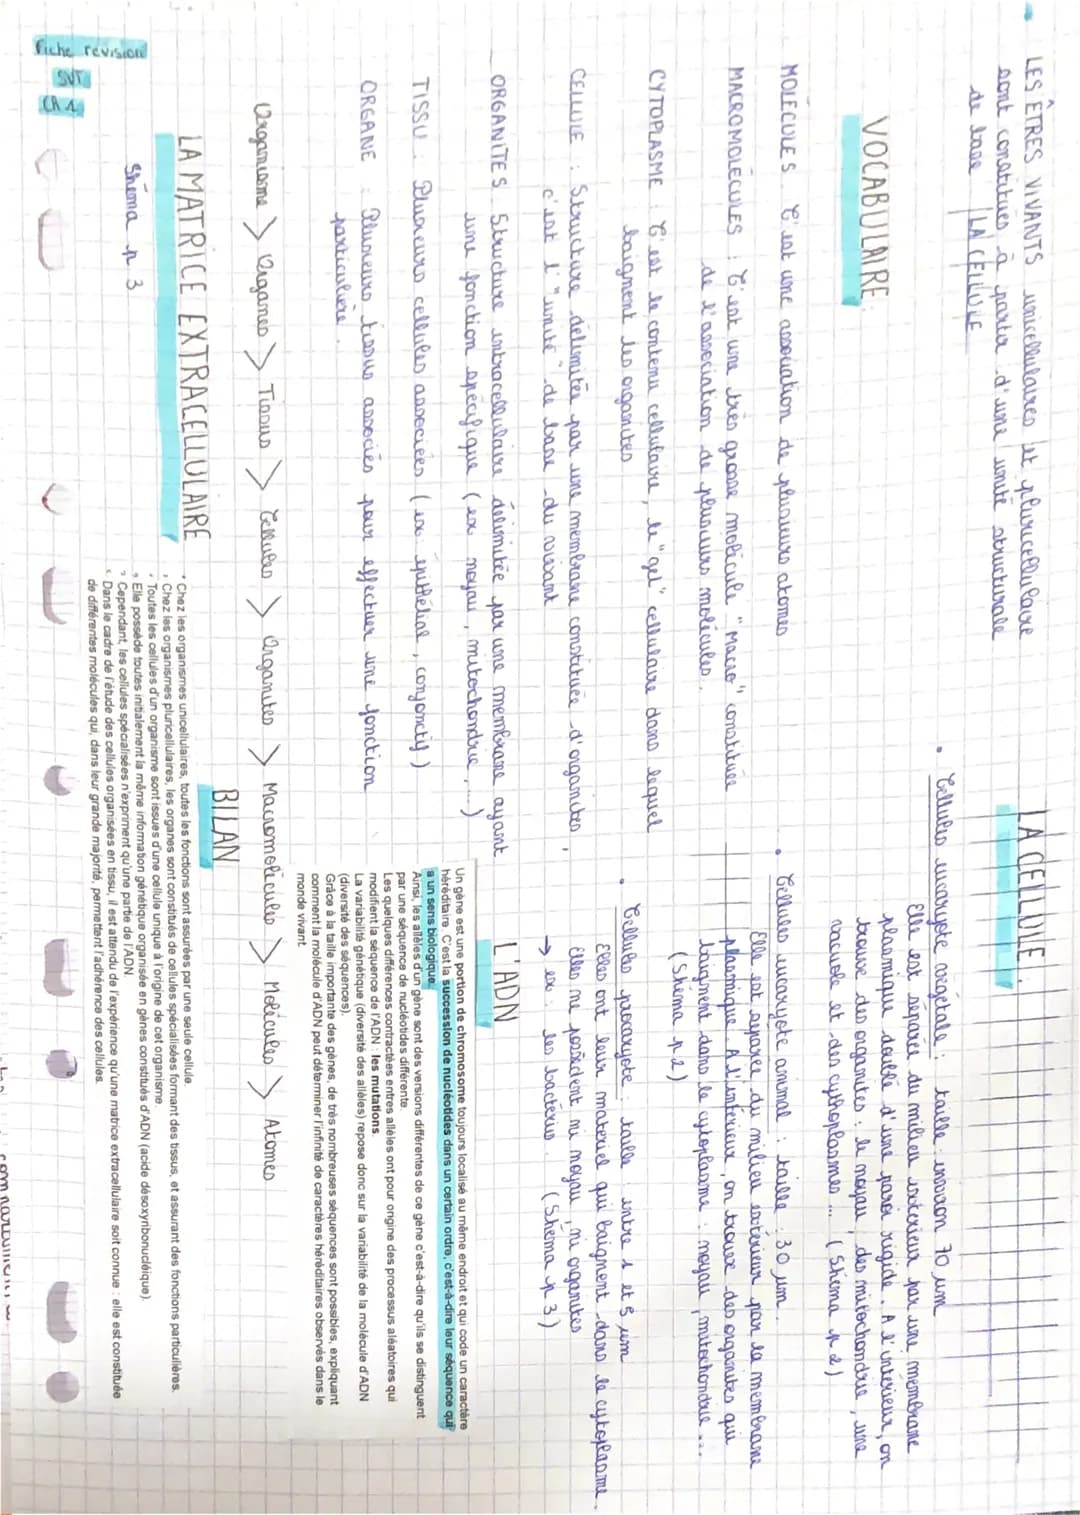 Fiche révision
SVT
CH 1
LES ÊTRES VIVANTS unicellulaires et pluricellulaire
sont constitués à partir d'une unité structurale
de base LA CELLULE
VOCABULAIRE :
MOLÉCULES C'est une association de plusieurs atomes
MACROMOLÉCULES : C'est une très grosse molécule "Macro" constituée
de l'association de plusieurs molécules.
CYTOPLASME : C'est le contenu cellulaire, le "gel" cellulaire dans lequel
baignent les organites
CELLULE : Structure délimitée par une membrane constituée d'organites,
c'est l'"unité" de base du vivant
ORGANITES : Structure intracellulaire délimitée par une membrane ayant
une fonction spécifique (ex noyau, mitochondrie, ...)
TISSU : Plusieurs cellules associées (ex : épithélial, conjonctif)
ORGANE : Plusieurs tissus associés pour effectuer une fonction
particulière.
Organisme > Organes > Tissus > Cellules > Organites > Macromolécules > Molécules > Atomes
LA MATRICE EXTRACELLULAIRE
Shéma p 3
LA CELLULE :
• Cellules eucaryote végétale : taille : environ 70 µm
Elle est séparée du milieu extérieur par une membrane
plasmique doublé d'une paroi rigide. A l'intérieur, on
trouve des organites : le noyau, des mitochondrie, une
vacuole et des cythoplasmes ... (Shéma p 2)
• Cellules eucaryote animal : taille : 30 µm.
Elle est séparée du milieu extérieur par la membrane
plasmique. A l'intérieur, on trouve des organites qui
baignent dans le cytoplasme : noyau, mitochondrie ...
(Shéma p 2)
• Cellules procaryote : taille : entre 1 et 5 µm
Elles ont leur matériel qui baignent dans le cytoplasme.
Elles ne possèdent ni noyau, ni organites
→ ex : les bactéries. (Shéma p 3)
L'ADN
Un gène est une portion de chromosome toujours localisé au même endroit et qui code un caractère
héréditaire. C'est la sucession de nucléotides dans un certain ordre, c'est-à-dire leur séquence qui
a un sens biologique.
Ainsi, les allèles d'un gène sont des versions différentes de ce gène c'est-à-dire qu'ils se distinguent
par une séquence de nucléotides différente.
Les quelques différences contractées entres allèles ont pour origine des processus aléatoires qui
modifient la séquence de l'ADN : les mutations.
La variabilité génétique (diversité des allèles) repose donc sur la variabilité de la molécule d'ADN
(diversité des séquences).
Grâce à la taille importante des gènes, de très nombreuses séquences sont possibles, expliquant
comment la molécule d'ADN peut déterminer l'infinité de caractères héréditaires observés dans le
monde vivant.
BILAN
• Chez les organismes unicellulaires, toutes les fonctions sont assurées par une seule cellule.
• Chez les organismes pluricellulaires, les organes sont constitués de cellules spécialisées formant des tissus, et assurant des fonctions particulières.
• Toutes les cellules d'un organisme sont issues d'une cellule unique à l'origine de cet organisme.
• Elle possède toutes initialement la même information génétique organisée en gènes constitués d'ADN (acide désoxyribonucléique).
• Cependant, les cellules spécialisées n'expriment qu'une partie de l'ADN.
• Dans le cadre de l'étude des cellules organisées en tissu, il est attendu de l'expérience qu'une matrice extracellulaire soit connue : elle est constituée
de différentes molécules qui, dans leur grande majorité, permettent l'adhérence des cellules.